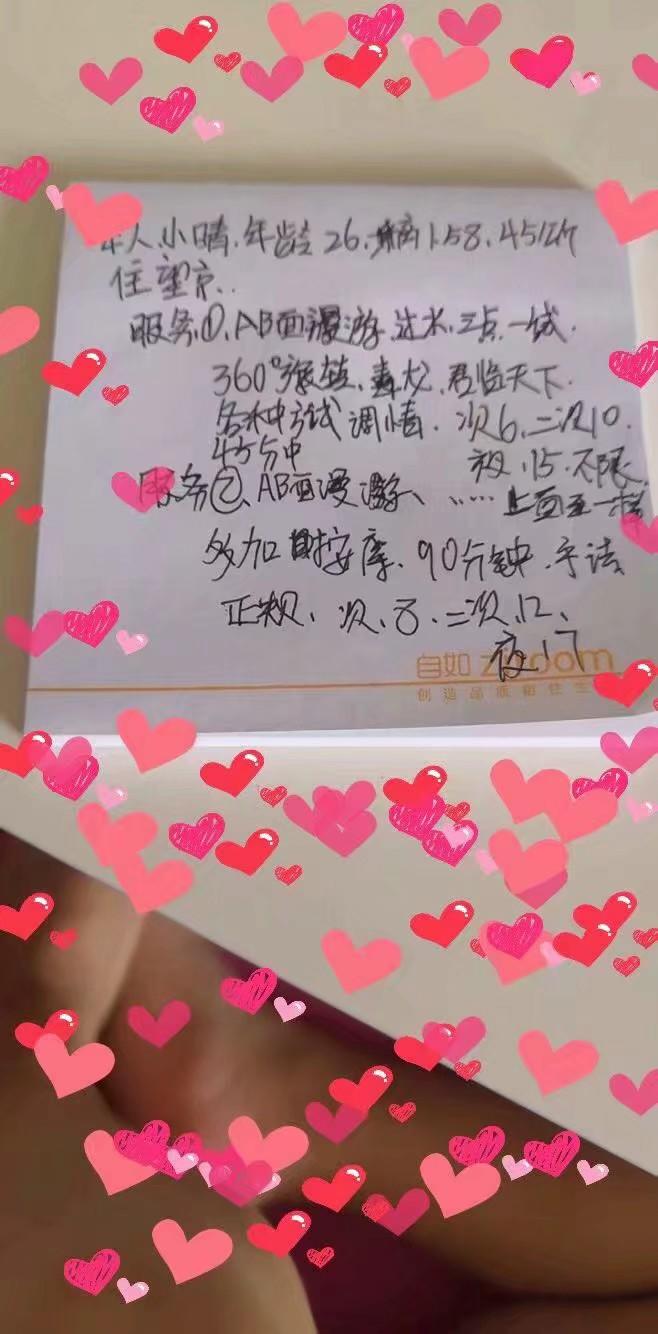 本人、小晴、年龄26、痛1.58、45公斤
住望京..
服务①、AB面漫游、过水、三点一线、
360°环链、毒龙、君临天下、
各种方式调情、次6、二次10、
45分中 夜、15、不限
服务②、AB面漫游、...... 上面五一样
多加 按摩、90分钟、手法
正规、次、8、二次、12、
夜17
自如 ziroom
创造品质租住生